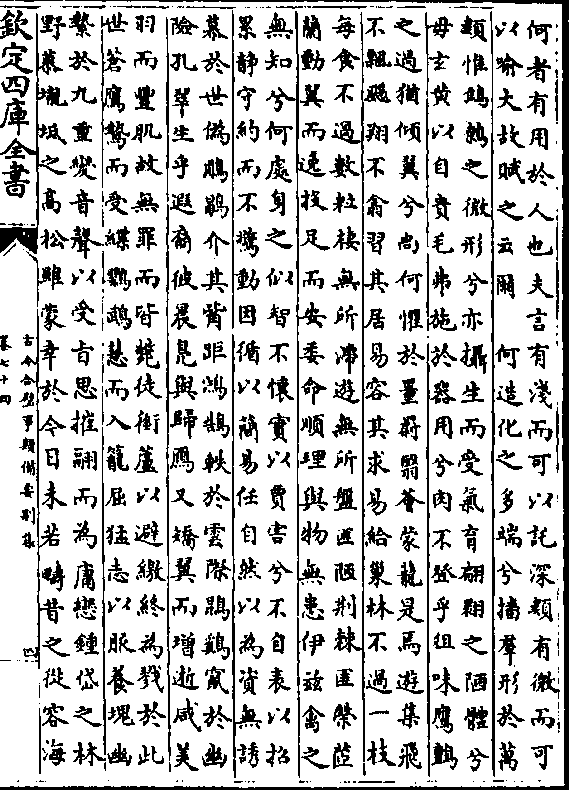 何者有用於人也夫言有淺而可以託深類有微而可
以喻大故賦之云爾　何造化之多端兮播羣形於萬
類惟鷦鷯之微形兮亦攝生而受氣育翩翾之陋體兮
毋玄黃以自貴毛弗施於器用兮肉不登乎俎味鷹鸇
之過猶傾翼兮尚何懼於罿罻翳薈蒙籠是焉遊集飛
不飄颺翔不翕習其居易容其求易給巢林不過一枝
每食不過數粒棲無所滯遊無所盤匪陋荆棘匪榮茝
蘭動翼而逸投足而安委命順理與物無患伊兹禽之
無知兮何處身之似智不懷寳以費害兮不自表以招
累静守約而不驚動因循以簡易任自然以為資無誘
慕於世偽鵰鶡介其觜距鴻鵠軼於雲際鵾鷄竄於幽
險孔翠生乎遐裔彼晨鳧與歸鴈又矯翼而增逝咸美
羽而豐肌故無罪而皆斃徒銜蘆以避繳終為戮於此
世蒼鷹鷙而受緤鸚鵡慧而入籠屈猛志以服養塊幽
縶於九重變音聲以受旨思摧翮而為庸戀鍾岱之林
野慕壠坻之高松雖蒙幸於今日未若疇昔之從容海
欽定四庫全書
古今合璧事類備要别集
卷七十四
四